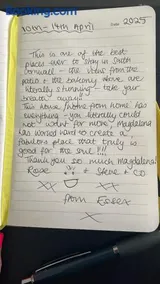 DATE 2025
10th - 14th April
This is one of the best
places ever to stay in South
Cornwall - the views from the
patio + the balcony above are
literally stunning - take your
breath away!
This home from home has
everything - you literally could
not want for more, Magdalena
has worked hard to create a
fabulous place that truly is
good for the soul !!!
Thank you so much Magdalena
Rose + Steve + CO
XX XX
from Essex
X